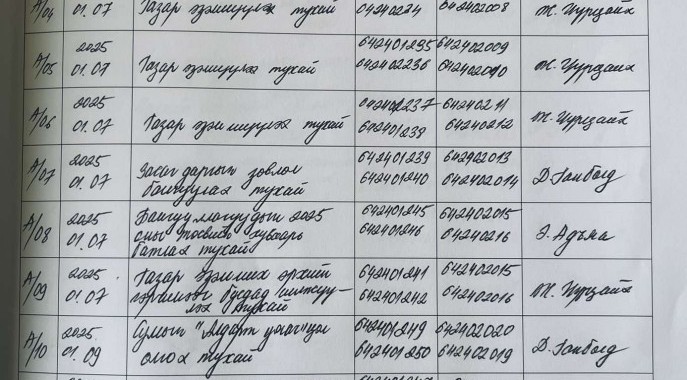 А/04 01.07 Газар эзэмшүүлэх тухай 04240234 642402008 М. Цурцайх
2025 642401235 642402009
А/05 01.07 Газар эзэмшүүлэх тухай 642402236 642402010
2025 642401237 64240211
А/06 01.07 Газар эзэмшүүлэх тухай 642401238 642402212
2025 Засаг даргын зөвлөл 642401239 642402013
А/07 01.07 байгуулах тухай 642401240 642402014 Д. Ганболд
2025 Байгууллагуудын 2025 642401245 642402015
А/08 01.07 оны төсвийн хуваарь 642401246 64240216
батлах тухай
2025 Газар эзэмших эрхийн 642401241 642402015
А/09 01.07 гэрчилгээг бусдад шилжүү- 642401242 642402016
лэх тухай
2025 Сумын "Алдарт уяач" цол 642401249 642402020
А/10 01.09 олгох тухай 642401250 642402019 Д. Ганболд